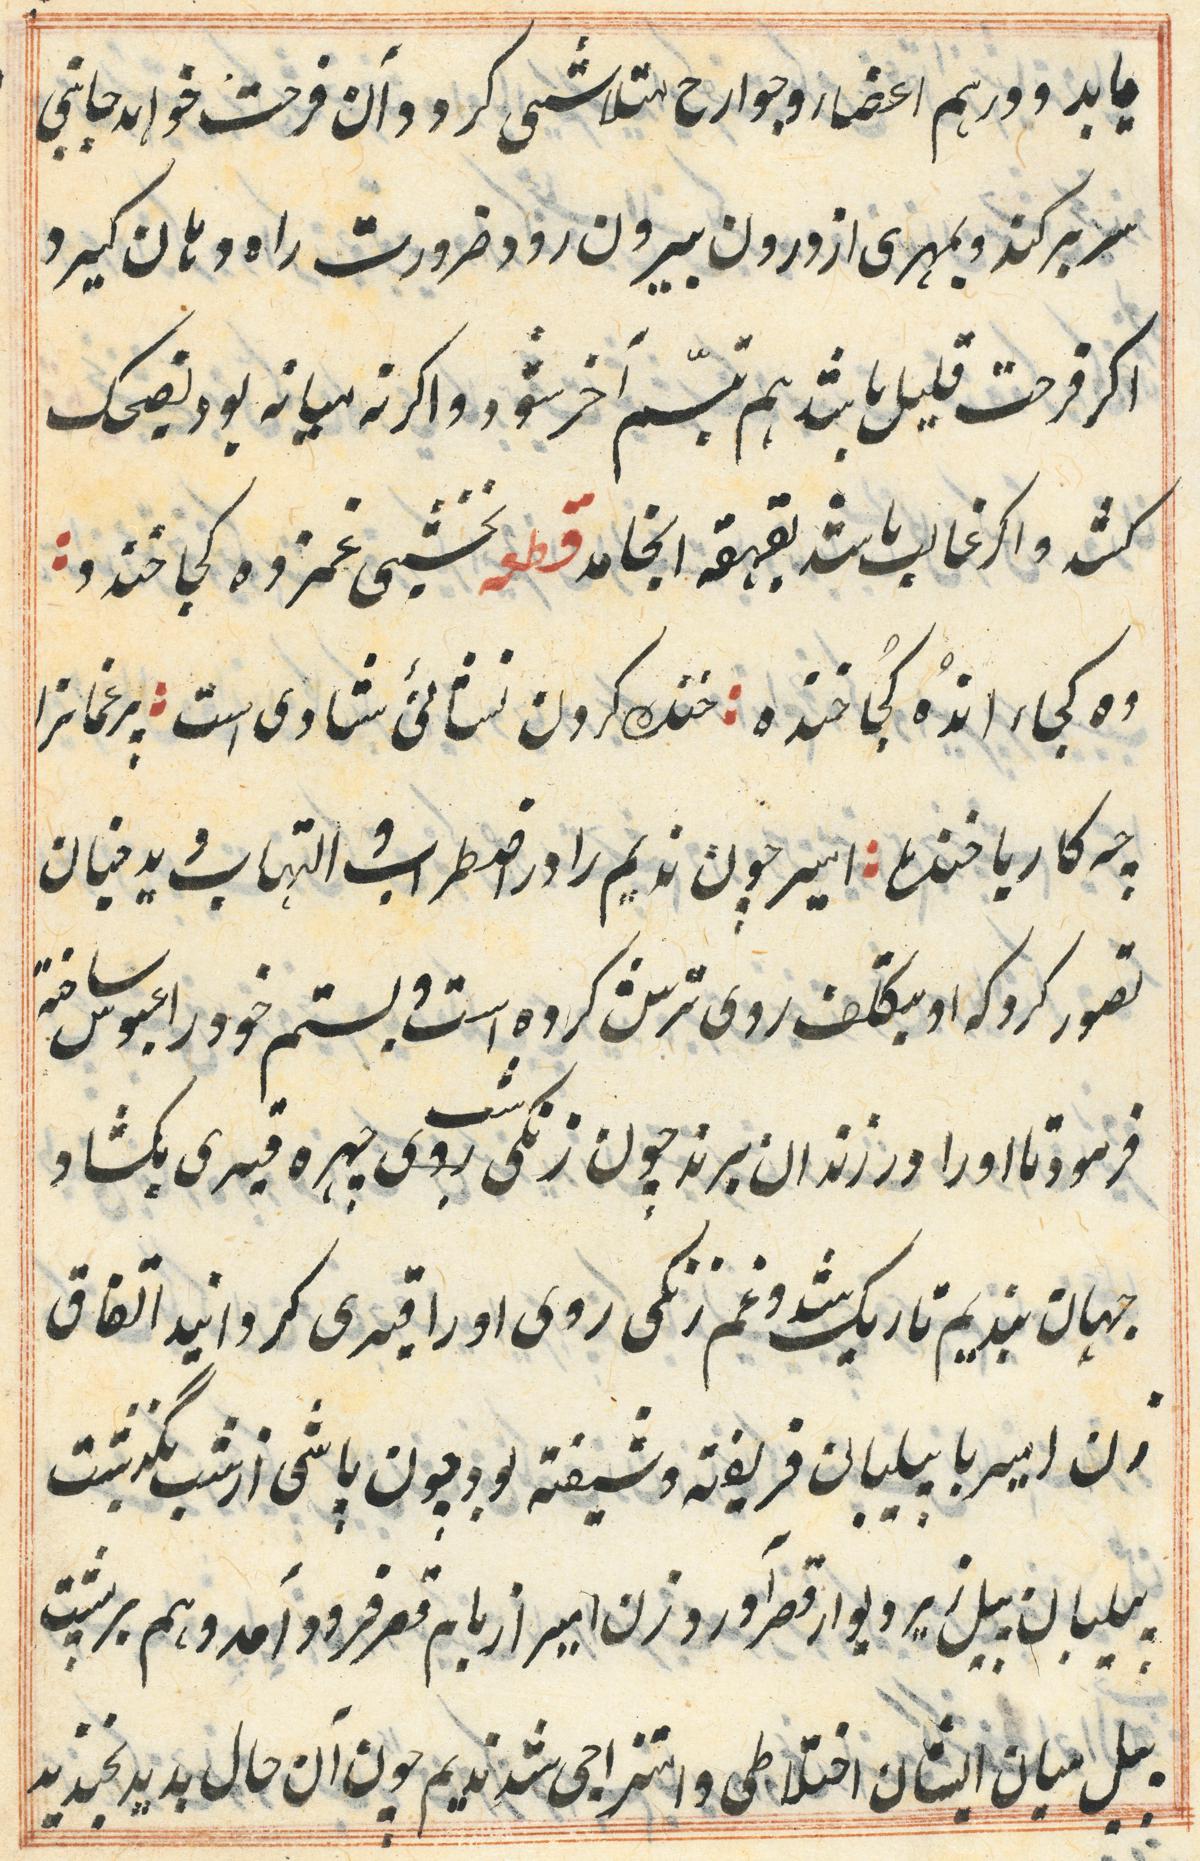 یابد و در هم اعضاء و جوارح متلاشی کردد و آن فرحت خواهد جانبی
سر بر کند و بمهری از درون بیرون رود ضرورت راه دهان کیرد
اکر فرحت قلیل باشد هم تبسّم آخر شود و اکر نه میانه بود بضحک
کشد و اکر غالب باشد بقهقه انجامد قطعه نخشبی غمزده کجا خندد :
وه کجاء اندُه کُجا خنده : خنده کردن نشانئ شادی است : پر غمانرا
چه کار با خنده : امیر چون ندیم را در اضطراب و التهاب دید چنان
تصور کرد که او بتکلف روی ترش کرده است و بستم خود را عبوس ساخته
فرمود تا او را در زندان برند چون زنکی شب روی چهره قیری بکشاد
جهان بندیم تاریک شد و غم زنکی روی او را قیری کردانید اتفاق
زن امیر با پیلبان فریفته و شیفته بود چون پاشی از شب بگذشت
پیلبان پیل زیر دیوار قصر آورد زن امیر از بام قصر فرود آمد و هم بر پشت
پیل میان ایشان اختلاطی و امتزاجی شد ندیم چون آن حال بدید بخندید